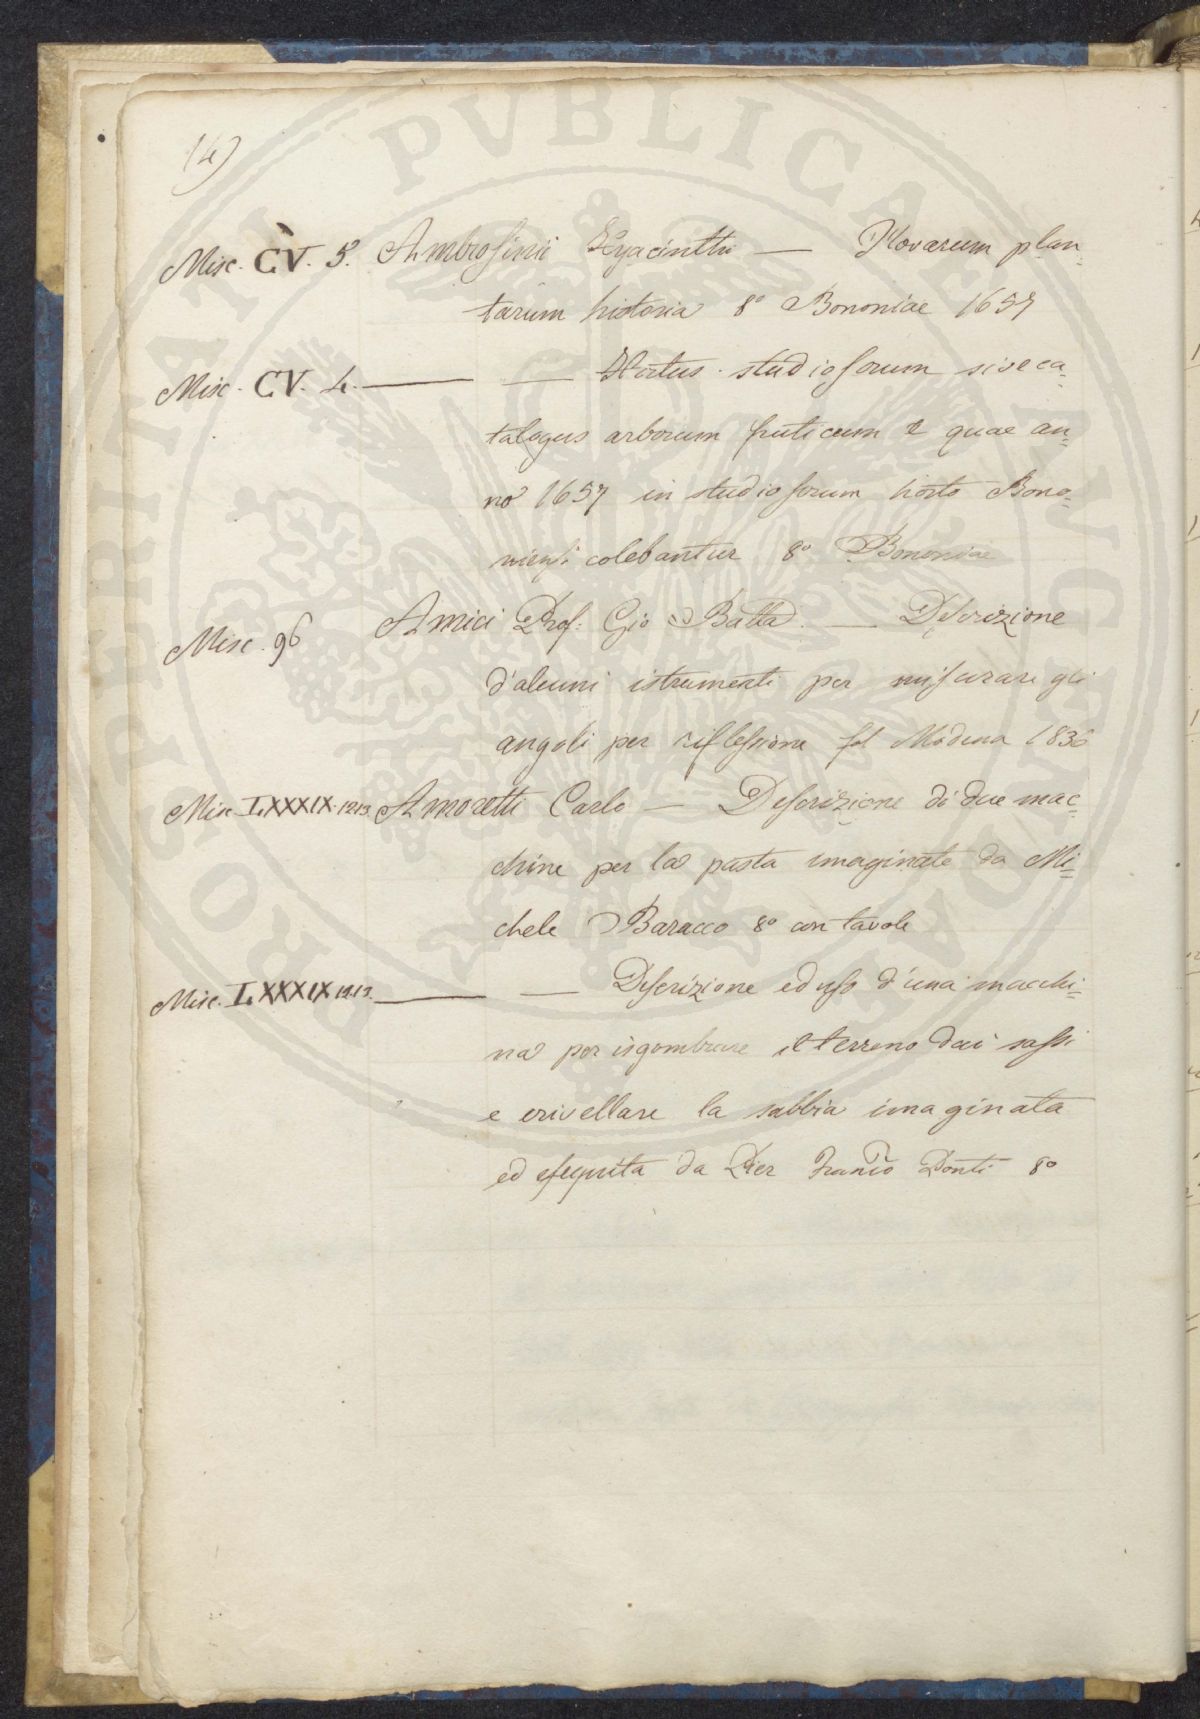 (4)
Misc. CV. 5. Ambrosinii Hyacinthi — Novarum plan=
tarum historia 8° Bononiae 1657
Misc. CV. 4. — — Hortus studiosorum sive ca=
talogus arborum fruticum & quae an=
no 1657 in studiosorum horto Bono=
niensi colebantur 8° Bononiae
Misc. 96 Amici Prof: Gio Batta. — Descrizione
d'alcuni istrumenti per misurare gli
angoli per riflessione fol Modena 1836
Misc. LXXXIX. 12.13. Amoretti Carlo — Descrizione di due mac=
chine per la pasta imaginate da Mi=
chele Baracco 8° con tavole
Misc. LXXXIX 12.13. — — Descrizione ed uso d'una macchi=
na per isgombrare il terreno dai sassi
e crivellare la sabbia imaginata
ed eseguita da Pier Franco Donti 8°